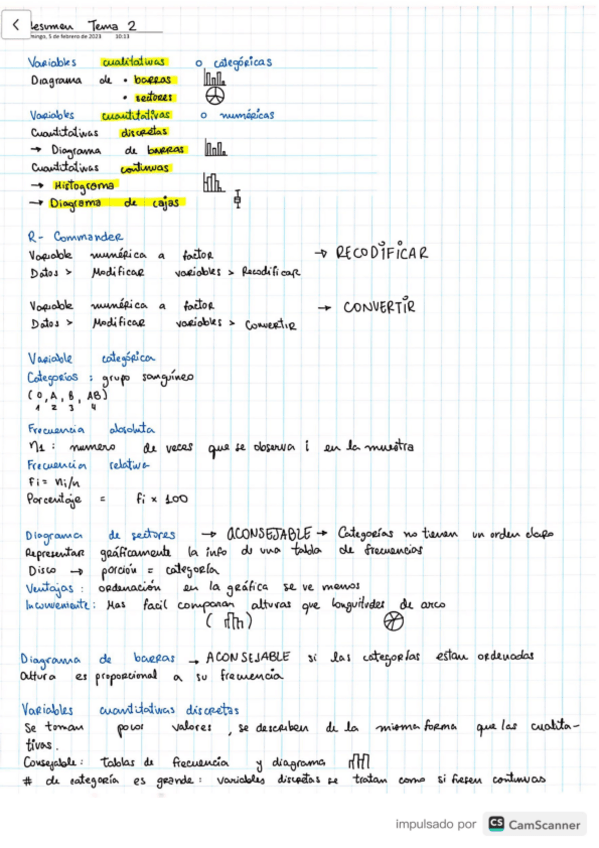 Resumen Tema 2
domingo, 5 de febrero de 2023 10:13
Variables cualitativas o categóricas
Diagrama de • barras
• sectores
Variables cuantitativas o numéricas
Cuantitativas discretas
→ Diagrama de barras
Cuantitativas continuas
→ Histograma
→ Diagrama de cajas
R- Commander
Variable numérica a factor → RECODIFICAR
Datos > Modificar variables > Recodificar
Variable numérica a factor → CONVERTIR
Datos > Modificar variables > Convertir
Variable categórica
Categorías : grupo sanguíneo
(0, A, B, AB)
1 2 3 4
Frecuencia absoluta
n1 : numero de veces que se observa i en la muestra
Frecuencia relativa
fi = ni/n
Porcentaje = fi x 100
Diagrama de sectores → ACONSEJABLE → Categorías no tienen un orden claro
Representar gráficamente la info de una tabla de frecuencias
Disco → porción = categoría
Ventajas : ordenación en la gráfica se ve menos
Inconveniente : Mas facil comparar alturas que longuitudes de arco
Diagrama de barras → ACONSEJABLE si las categorías estan ordenadas
Altura es proporcional a su frecuencia
Variables cuantitativas discretas
Se toman pocos valores, se describen de la misma forma que las cualita-
tivas.
Consejable : tablas de frecuencia y diagrama
# de categoría es grande : variables discretas se tratan como si fuesen continuas
impulsado por CS CamScanner